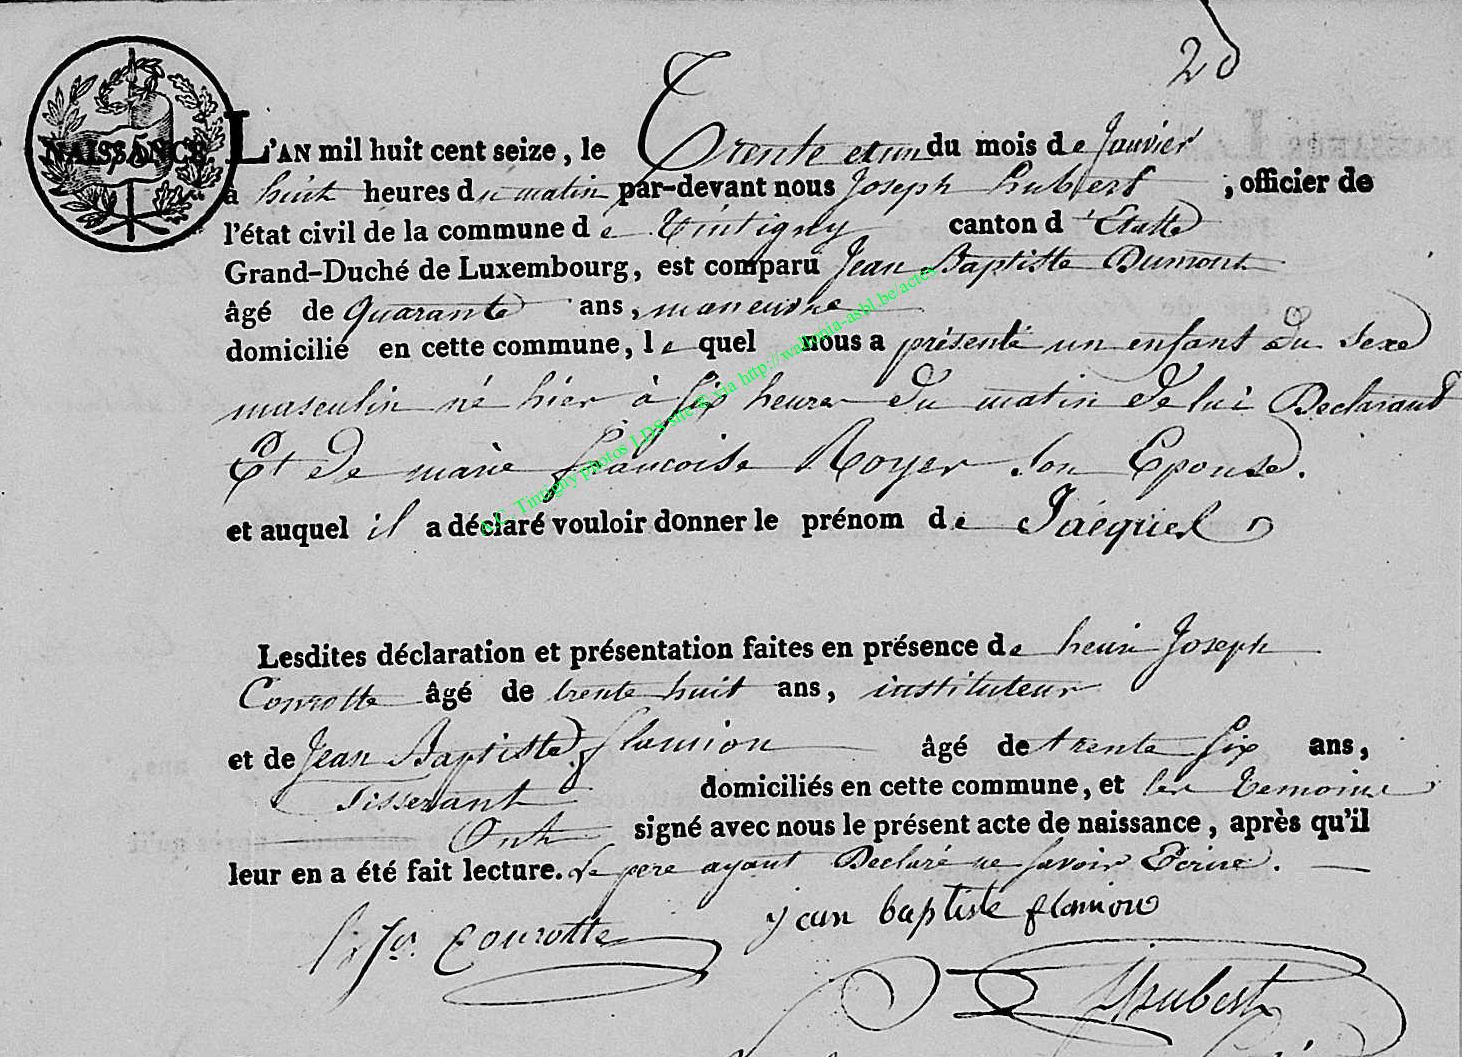 20
NAISSANCE.
L'AN mil huit cent seize, le Trente et un du mois de Janvier
à huit heures du matin par-devant nous Joseph hubert, officier de
l'état civil de la commune de Tintigny canton d'Etalle
Grand-Duché de Luxembourg, est comparu Jean Baptiste Dumont
âgé de quarante ans, maneuvre
domicilié en cette commune, lequel nous a présenté un enfant du sexe
masculin né hier à six heures du matin de lui Declarant
Et de marie françoise Royer son Epouse.
et auquel il a déclaré vouloir donner le prénom de Jacques
Lesdites déclaration et présentation faites en présence de henri Joseph
Conrotte âgé de trente huit ans, instituteur
et de Jean Baptiste flamion âgé de trente six ans,
Tisserant domiciliés en cette commune, et les temoins
Ont signé avec nous le présent acte de naissance, après qu'il
leur en a été fait lecture. Le pere ayant Declaré ne savoir Ecrire.
conrotte jean baptiste flamion
Hubert
A.C. Tintigny photos LDS site & via http://wallonia-asbl.be/actes